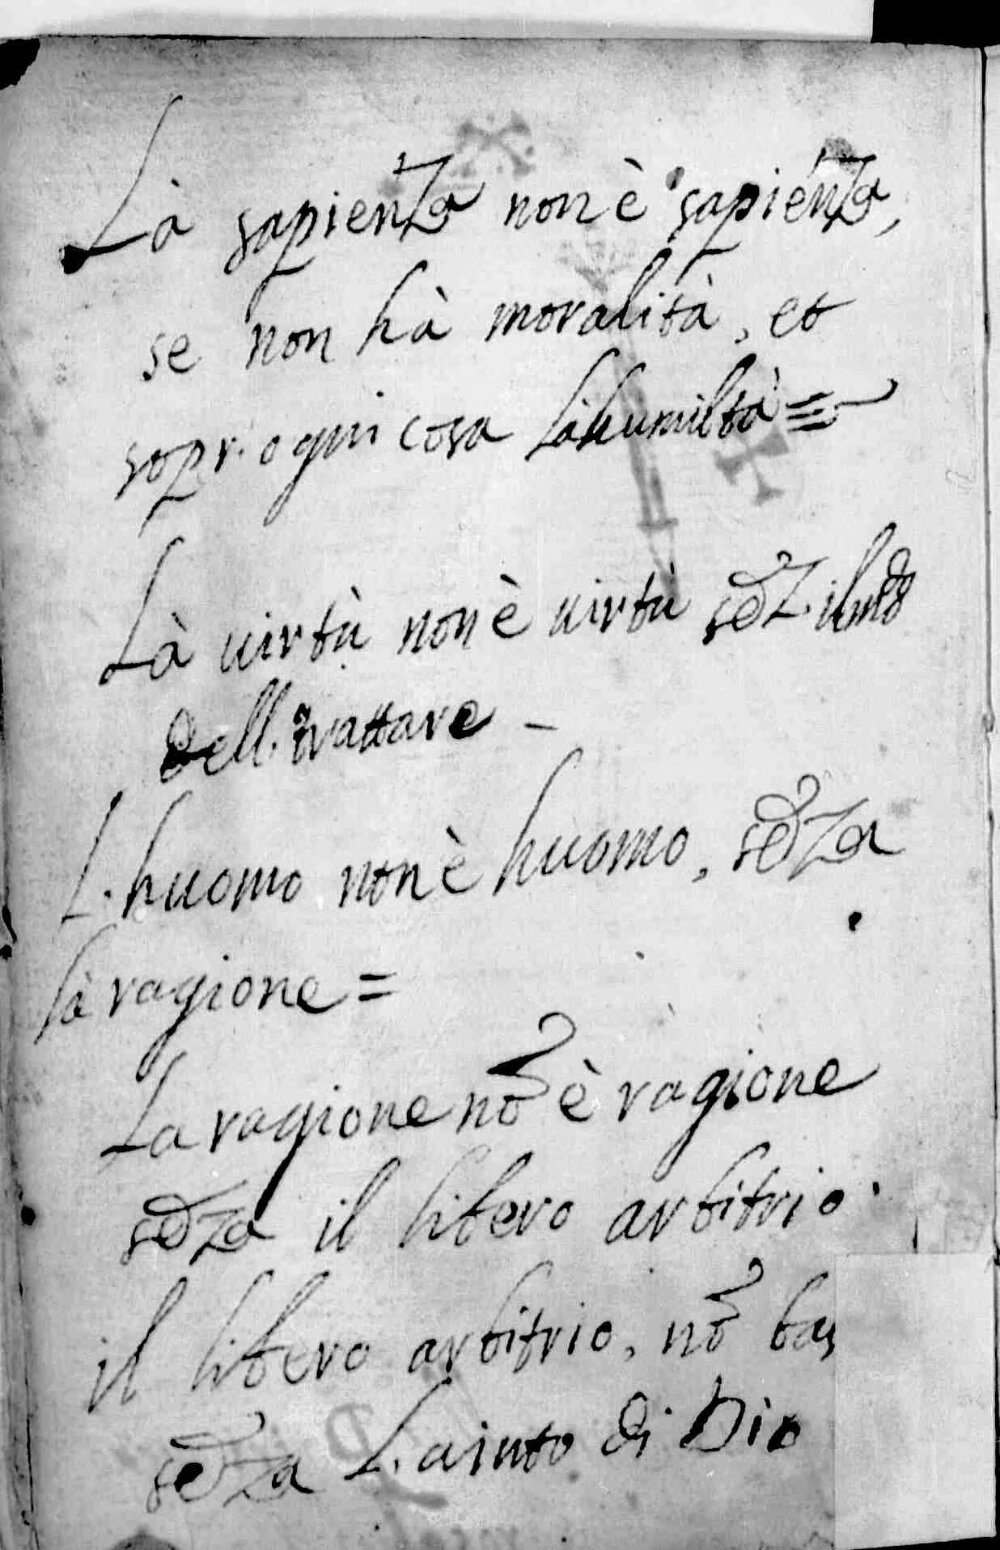 Là sapienza non è sapienza,
se non hà moralità, et
sopr. ogni cosa là humiltà =
Là uirtù non è uirtù sẽz. il
dell. trattare -
L. huomo non è huomo, sẽza
là ragione =
La ragione nõ è ragione
sẽza il libero arbitrio.
il libero arbitrio, nõ bas
sẽza L. aiuto di Dio